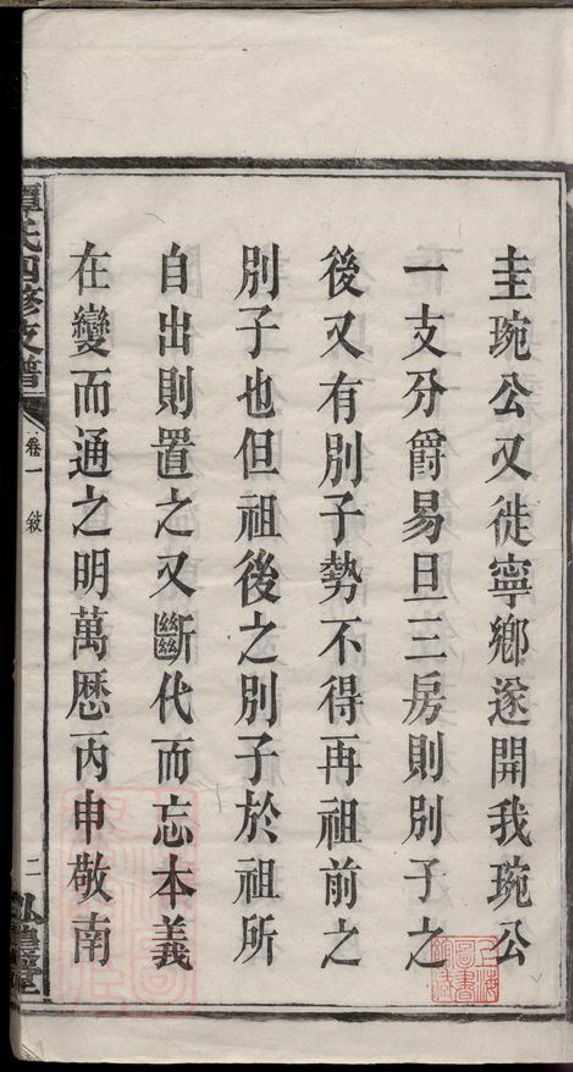 圭琬公又徙寧鄉遂開我琬公
一支分爵易旦三房則別子之
後又有別子勢不得再祖前之
別子也但祖後之別子於祖所
自出則置之又斷代而忘本義
在變而通之明萬厯丙申敬南
譚氏四修支譜
卷一 敘
二
弘農堂
上海圖書館藏